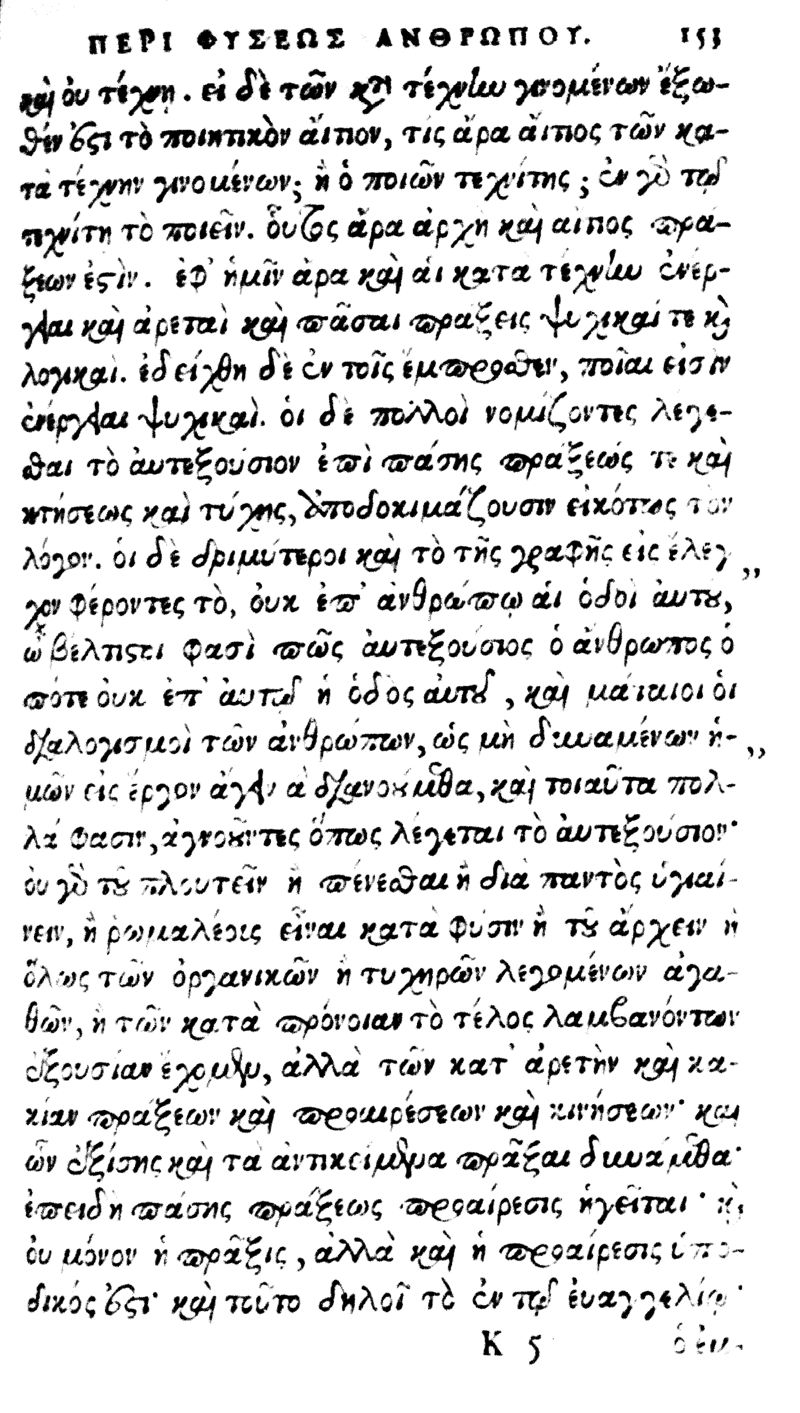 ΠΕΡΙ ΦΥΣΕΩΣ ΑΝΘΡΩΠΟΥ. 153
καὶ οὐ τέχνη. εἰ δὲ τῶν κατὰ τέχνην γινομένων ἔξω-
θέν ἐστι τὸ ποιητικὸν ἄιτιον, τίς ἄρα ἄιτιος τῶν κα-
τὰ τέχνην γινομένων; ἢ ὁ ποιῶν τεχνίτης; ἐν γὰρ τῷ
τεχνίτῃ τὸ ποιεῖν. οὗτος ἄρα ἀρχὴ καὶ αἴτιος πρά-
ξεων ἐστὶν. ἐφ' ἡμῖν ἄρα καὶ αἱ κατὰ τέχνην ἐνέρ-
γειαι καὶ ἀρεταὶ καὶ πᾶσαι πράξεις ψυχικαί τε καὶ
λογικαὶ. ἐδείχθη δὲ ἐν τοῖς ἔμπροσθεν, ποῖαι εἰσὶν
ἐνέργειαι ψυχικαὶ. ὁι δὲ πολλοὶ νομίζοντες λέγε-
σθαι τὸ ἀυτεξούσιον ἐπὶ πάσης πράξεώς τε καὶ
κτήσεως καὶ τύχης, ἀποδοκιμάζουσιν εἰκότως τὸν
λόγον. ὁι δὲ δριμύτεροι καὶ τὸ τῆς γραφῆς εἰς ἔλεγ
χον φέροντες τὸ, ὀυκ ἐπ' ἀνθρώπῳ ἁι ὁδοὶ ἀυτοῦ, ,,
ὦ βέλτιστοι φασὶ πῶς ἀυτεξούσιος ὁ ἄνθρωπος ὁ
πότε ὀυκ ἐπ' ἀυτῷ ἡ ὁδὸς ἀυτοῦ, καὶ μάταιοι ὁι
διαλογισμοὶ τῶν ἀνθρώπων, ὡς μὴ δυναμένων ἡ- ,,
μῶν εἰς ἔργον ἄγειν ἃ διανοούμεθα, καὶ τοιαῦτα πολ-
λά φασιν, ἀγνοοῦντες ὅπως λέγεται τὸ ἀυτεξούσιον·
ὀυ γὰρ τοῦ πλουτεῖν ἢ πένεσθαι ἢ διὰ παντὸς ὑγιαί-
νειν, ἢ ῥωμαλέοις εἶναι κατὰ φύσιν ἢ τοῦ ἄρχειν ἢ
ὅλως τῶν ὀργανικῶν ἢ τυχηρῶν λεγομένων ἀγα-
θῶν, ἢ τῶν κατὰ πρόνοιαν τὸ τέλος λαμβανόντων
ἐξουσίαν ἔχομεν, ἀλλὰ τῶν κατ' ἀρετὴν καὶ κα-
κίαν πράξεων καὶ προαιρέσεων καὶ κινήσεων· καὶ
ὧν ἐξίσης καὶ τὰ ἀντικείμενα πρᾶξαι δυνάμεθα·
ἐπειδὴ πάσης πράξεως προαίρεσις ἡγεῖται· καὶ
ὀυ μόνον ἡ πρᾶξις, ἀλλὰ καὶ ἡ προαίρεσις ὑπό-
δικός ἐστι· καὶ τοῦτο δηλοῖ τὸ ἐν τῷ ἐυαγγελίῳ·
K 5